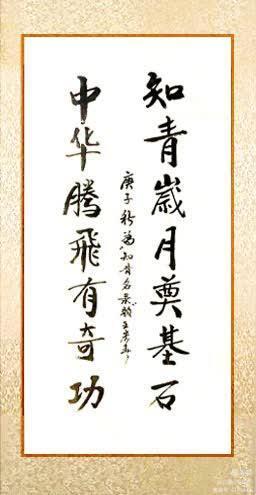 知青歲月奠基石
中华腾飛有奇功
庚子秋為知青名录